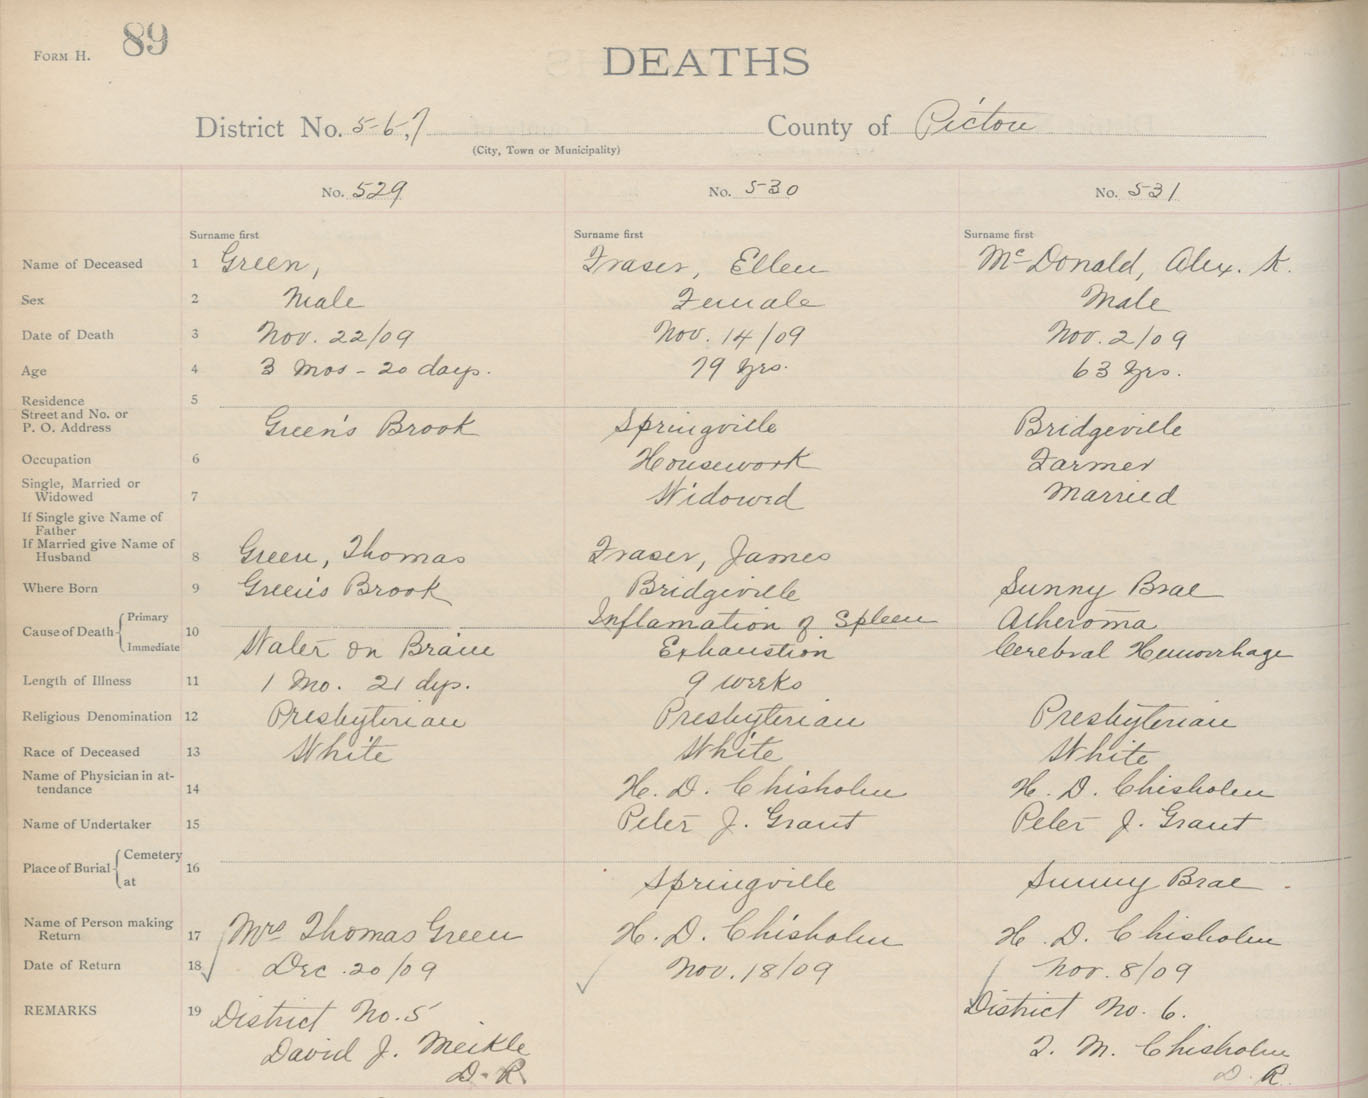 FORM H. 89
DEATHS
District No. 5-6,7 County of Pictou
(City, Town or Municipality)
No. 529 No. 530 No. 531
Surname first Surname first Surname first
Name of Deceased 1 Green, Fraser, Ellen McDonald, Alex. K.
Sex 2 Male Female Male
Date of Death 3 Nov. 22/09 Nov. 14/09 Nov. 2/09
Age 4 3 Mos - 20 days. 79 yrs. 63 yrs.
Residence 5
Street and No. or
P. O. Address Green's Brook Springville Bridgeville
Occupation 6 Housework Farmer
Single, Married or
Widowed 7 Widowed Married
If Single give Name of
Father
If Married give Name of
Husband 8 Green, Thomas Fraser, James
Where Born 9 Green's Brook Bridgeville Sunny Brae
Cause of Death Primary 10 Inflamation of Spleen Atheroma
Immediate Water on Brain Exhaustion Cerebral Hemorrhage
Length of Illness 11 1 Mo. 21 dys. 9 weeks
Religious Denomination 12 Presbyterian Presbyterian Presbyterian
Race of Deceased 13 White White White
Name of Physician in at-
tendance 14 H. D. Chisholm H. D. Chisholm
Name of Undertaker 15 Peter J. Grant Peter J. Grant
Place of Burial Cemetery 16
at Springville Sunny Brae
Name of Person making
Return 17 Mrs Thomas Green H. D. Chisholm H. D. Chisholm
Date of Return 18 Dec. 20/09 Nov. 18/09 Nov. 8/09
REMARKS 19 District No. 5 District No. 6.
David J. Meikle T. M. Chisholm
D. R. D. R.